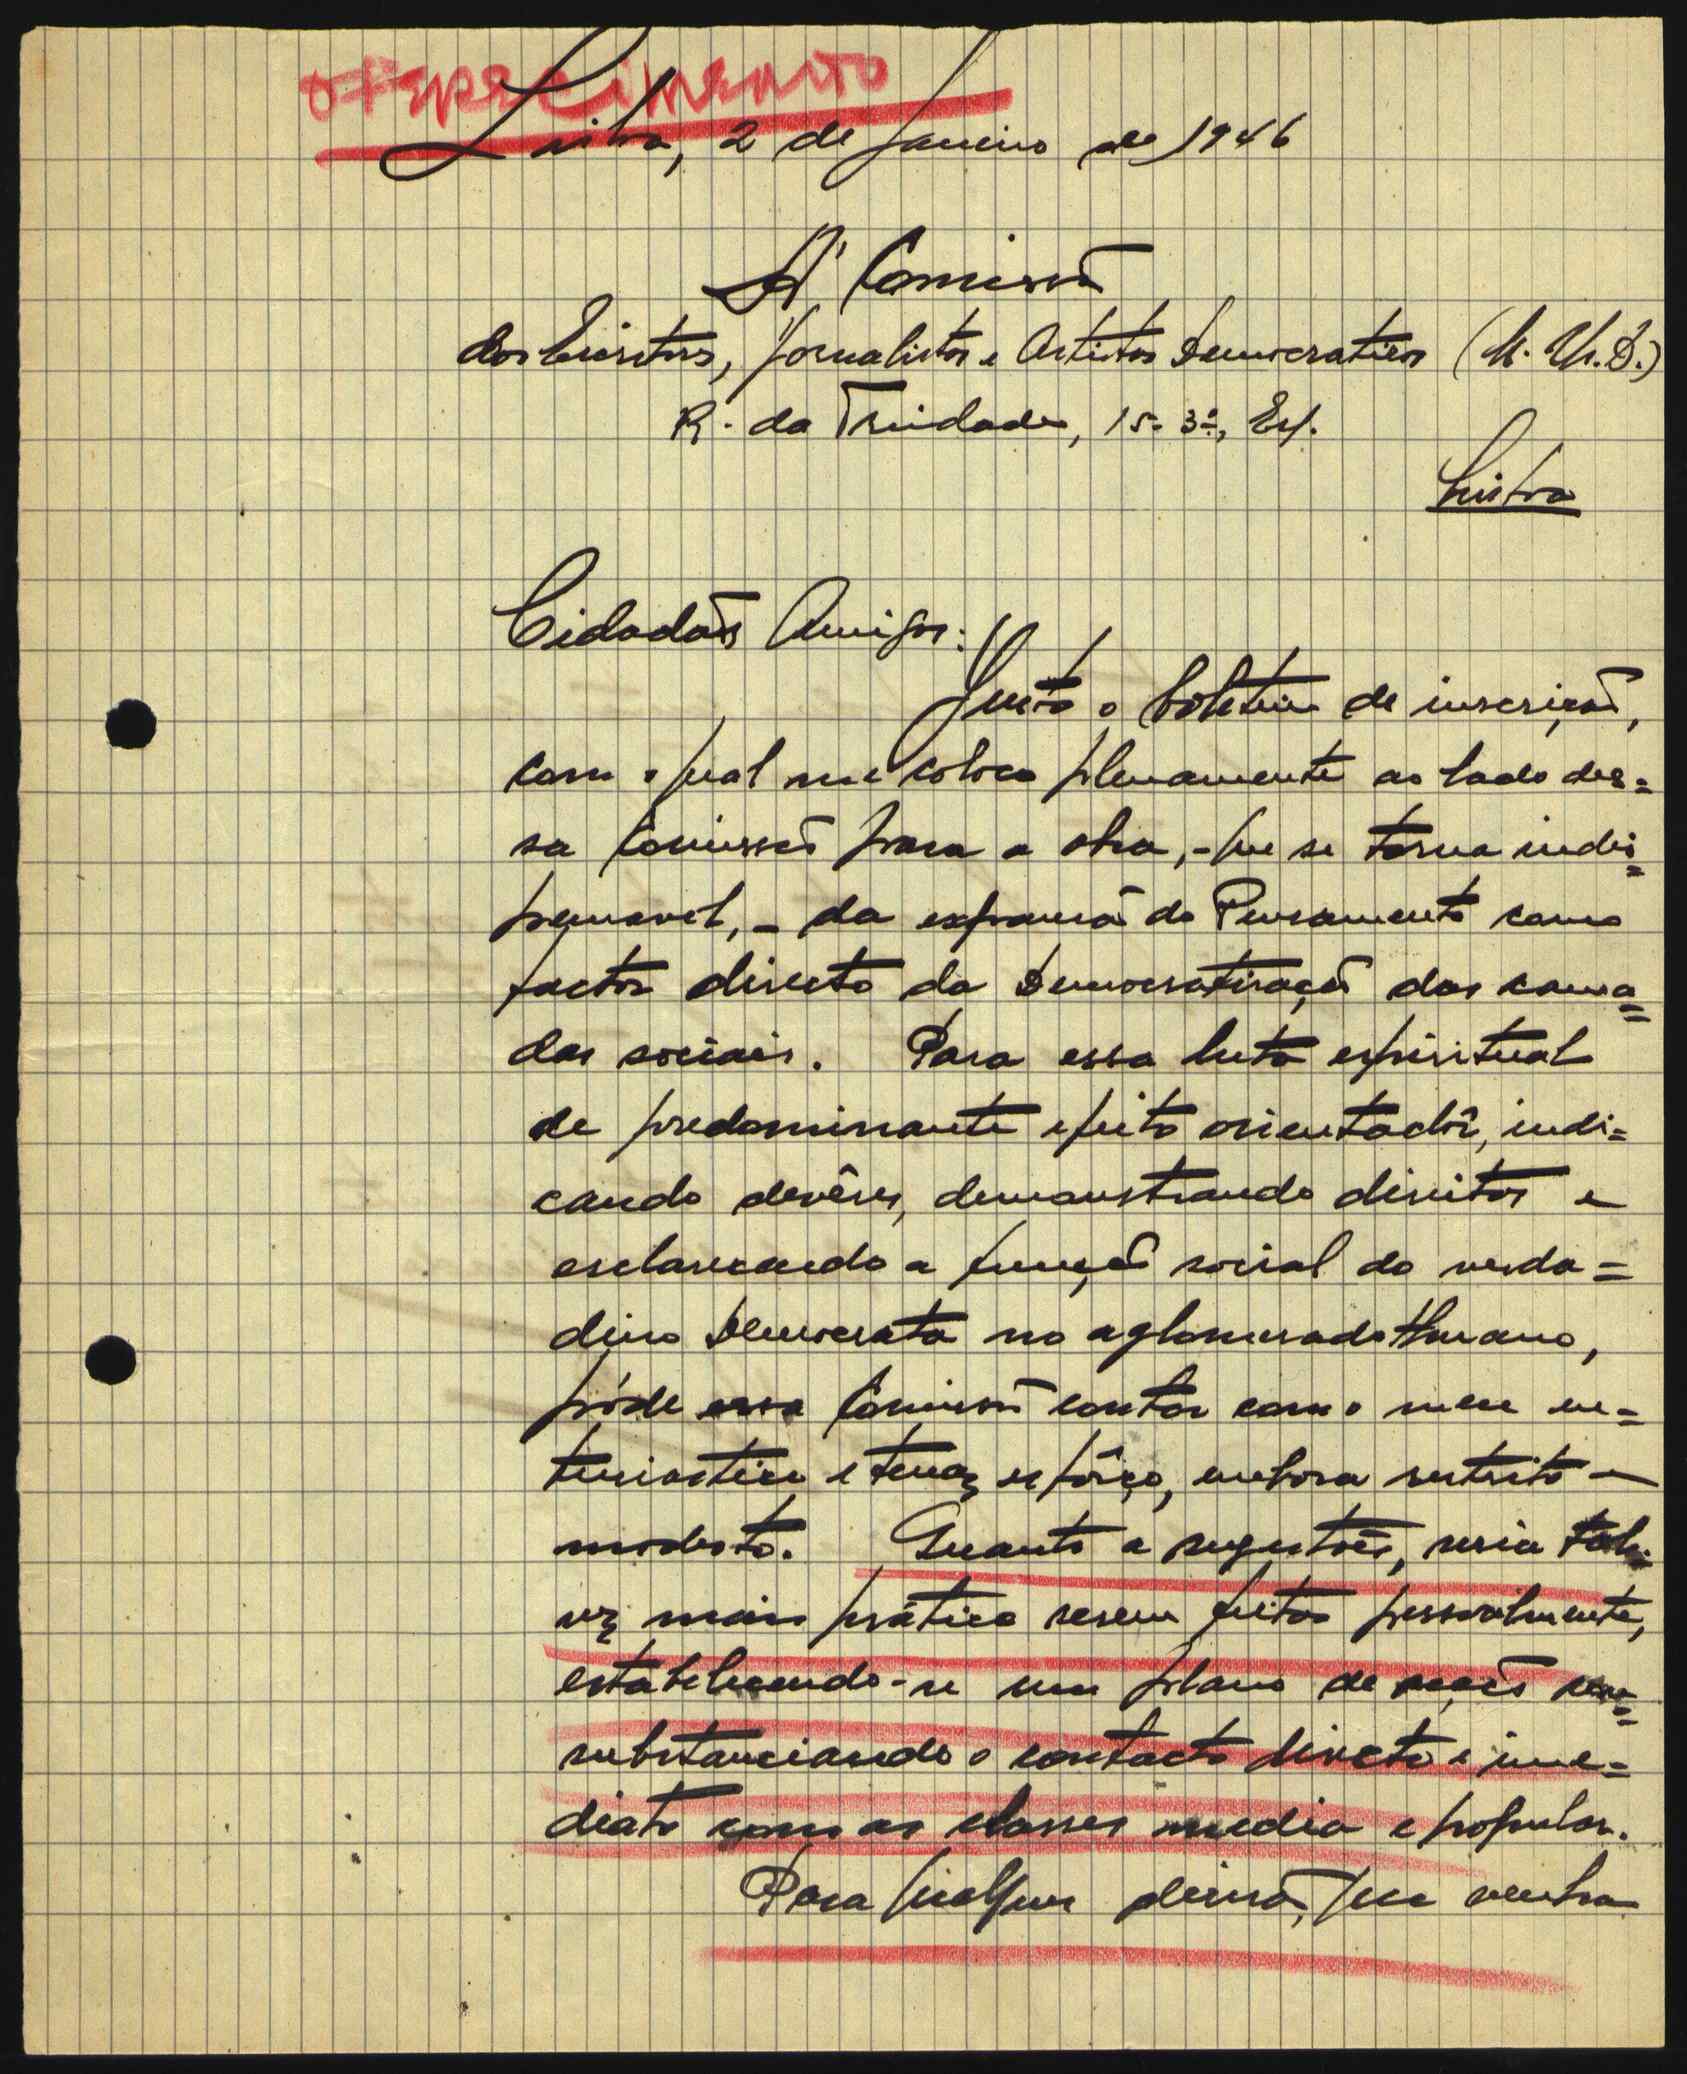 oferecimento
Lisboa, 2 de Janeiro de 1946
A' Comissão
dos Escritores, Jornalistas e Artistas Democraticos (M. U. D.)
R. da Trindade, 15-3º, Esq.
Lisboa
Cidadãos Amigos:
Junto o boletim de inscrição,
com o qual me coloco plenamente ao lado des=
sa Comissão para a obra, - que se torna indis=
pensavel, - da expansão do Pensamento como
factor directo da Democratização das cama=
das sociais. Para essa luta espiritual
de predominante efeito orientadôr, indi=
cando devêres, demonstrando direitos e
esclarecendo a função social do verda=
deiro Democrata no aglomerado Humano,
póde essa Comissão contar com o meu en=
tusiastico e tenaz esfôrço, embora restrito e
modesto. Quanto a sugestões, seria tal=
vez mais prático serem feitas pessoalmente,
estabelecendo-se um plano de acção con=
substanciando o contacto directo e ime=
diato com as classes media e popular.
Para qualquer decisão, que venha